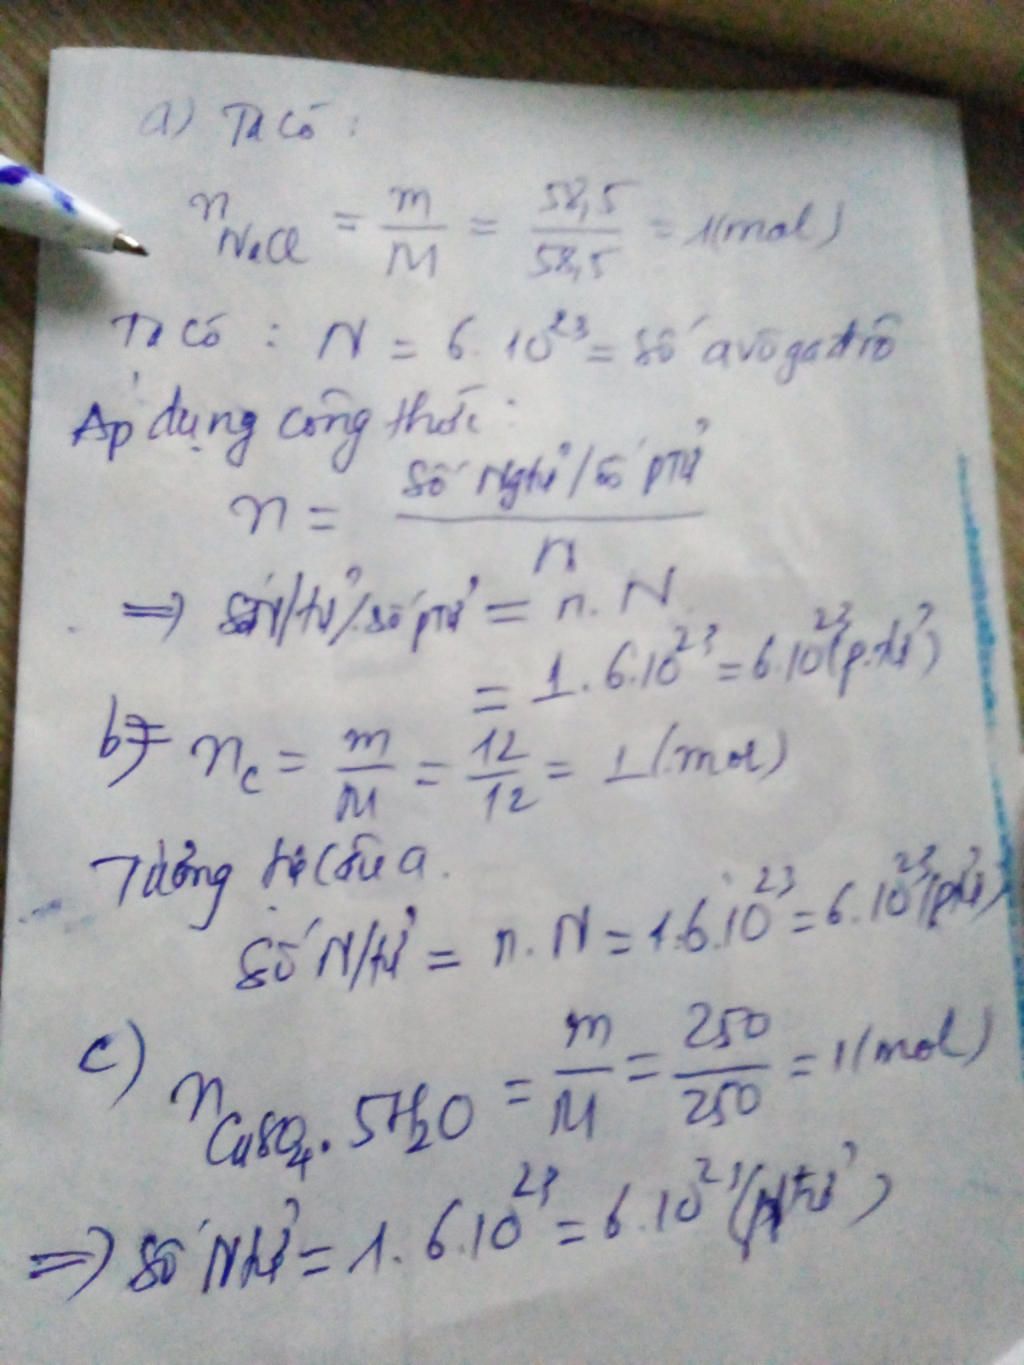 a) Ta có :
n NaCl = m/M = 58,5/58,5 = 1(mol)
Ta có : N = 6.10^23 = số avôgađrô
Áp dụng công thức :
n = số Ngtử/số ptử / N
=> số N/tử/số ptử = n.N
= 1.6.10^23 = 6.10^23 (p.tử)
b) n C = m/M = 12/12 = 1(mol)
Tương tự câu a.
số N/tử = n.N = 1.6.10^23 = 6.10^23 (ptử)
c) n CuSO4.5H2O = m/M = 250/250 = 1(mol)
=> số Ntử = 1.6.10^23 = 6.10^23 (tử)